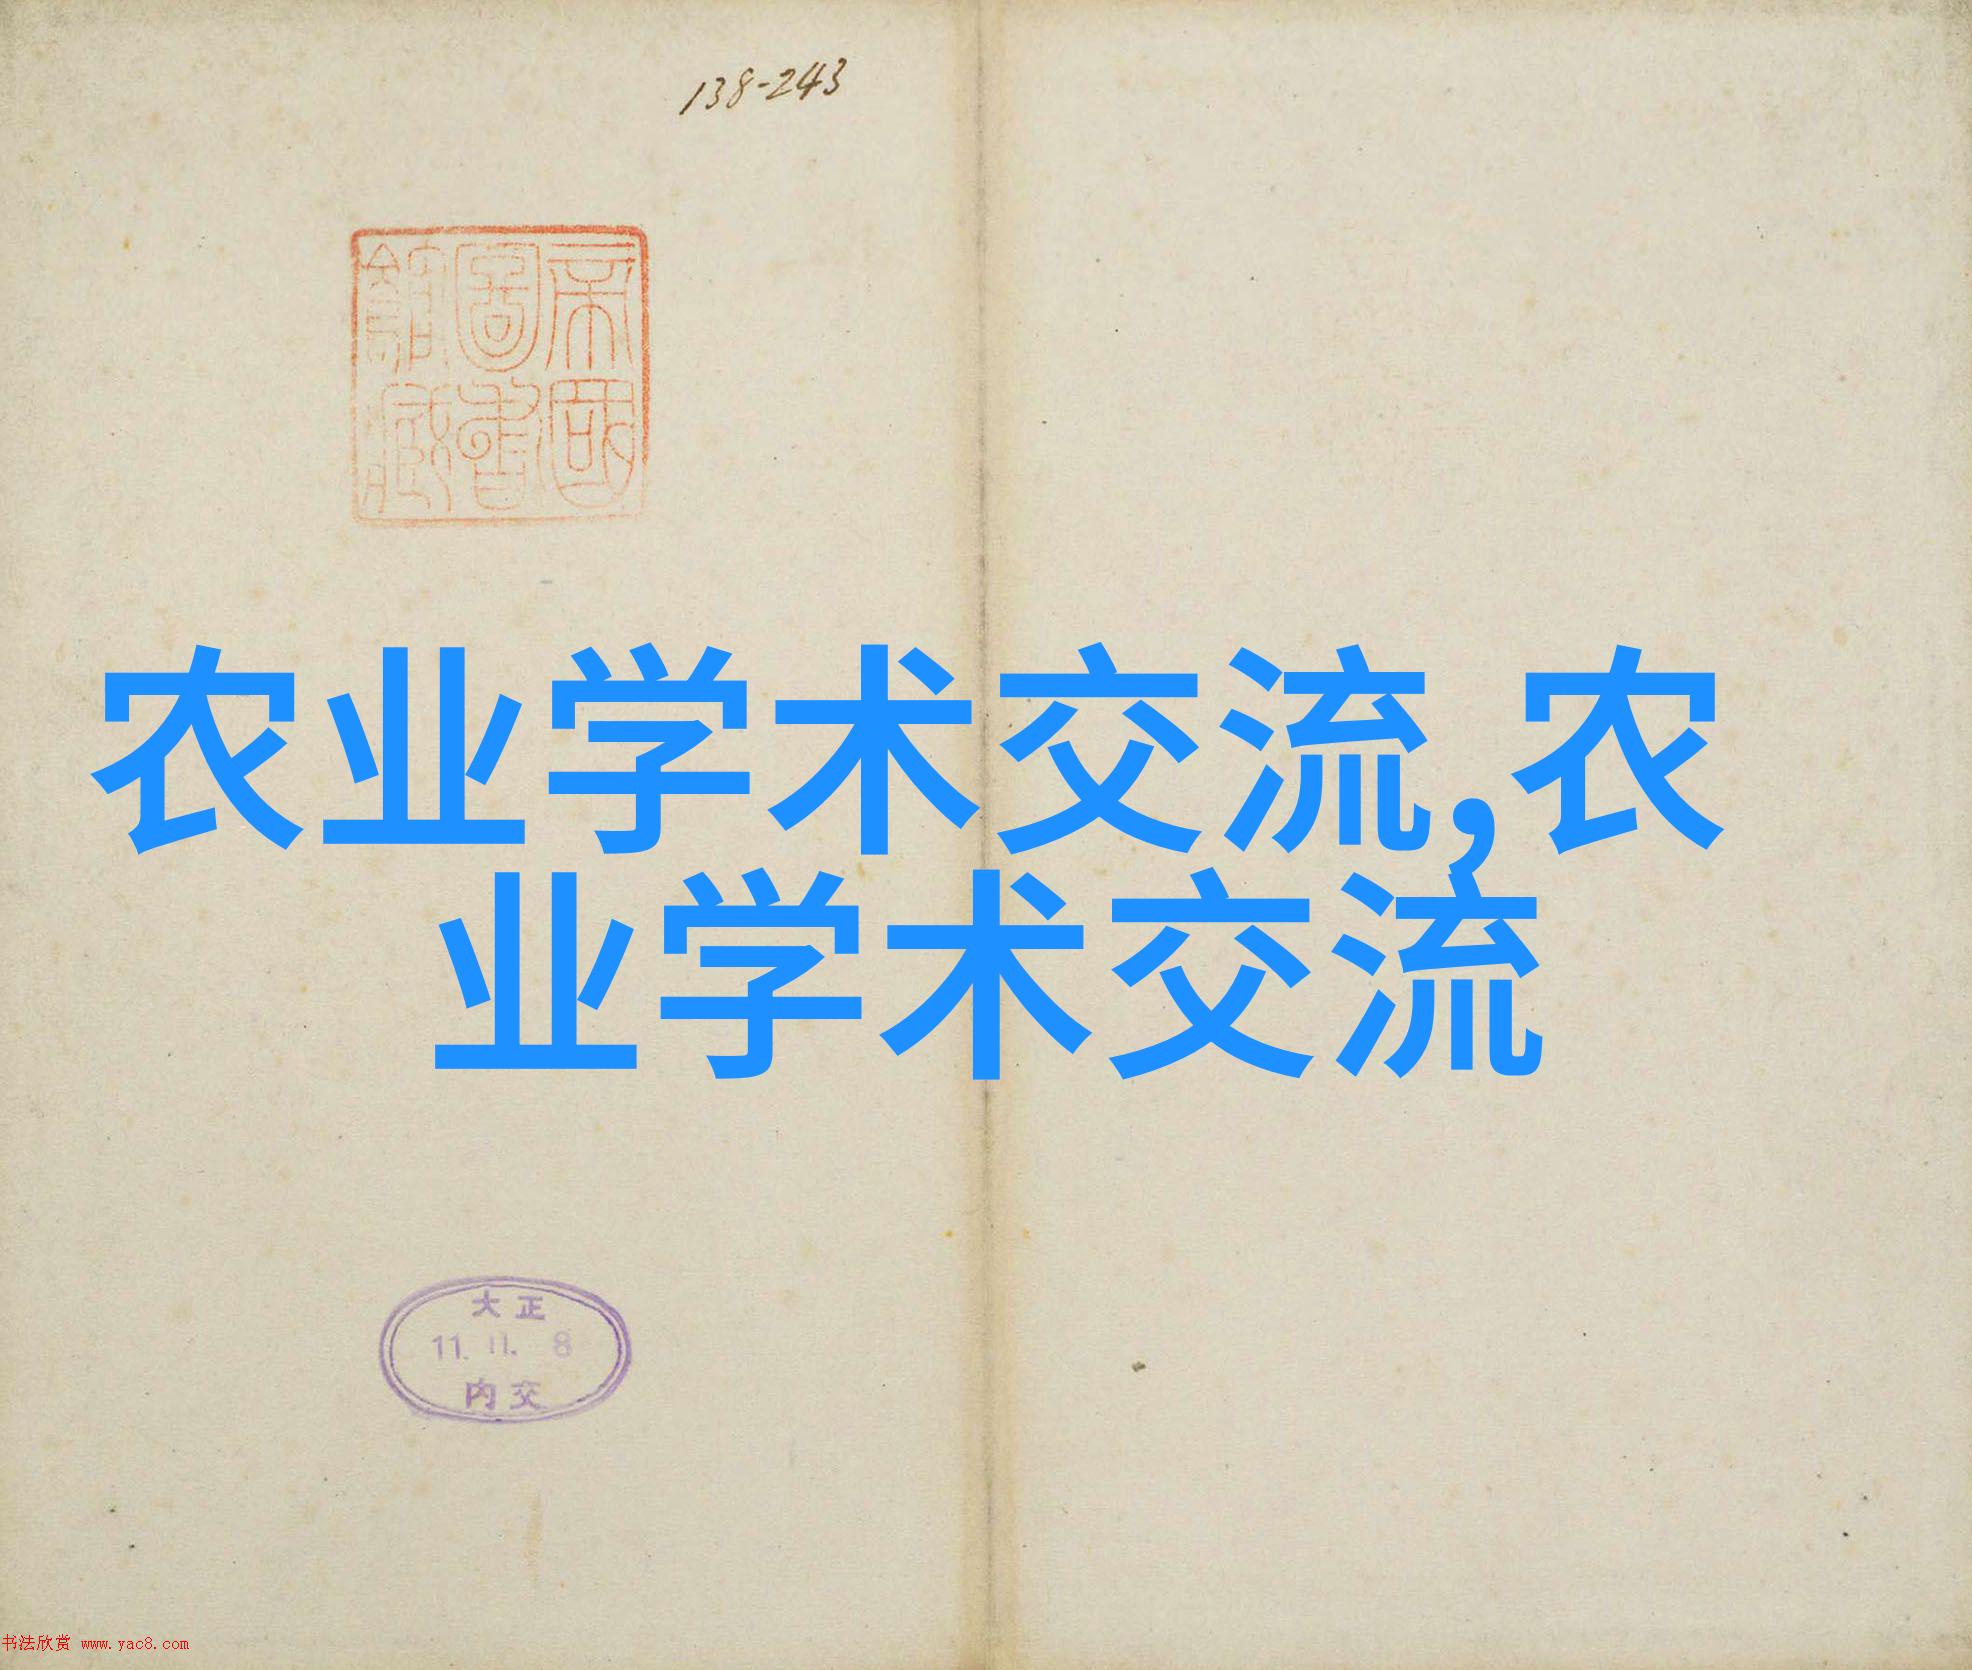 138-243
帝國
圖書
館藏
农业学术交流,农
业学术交流
大正
11.11.8
内交
书法欣赏 www.yac8.com